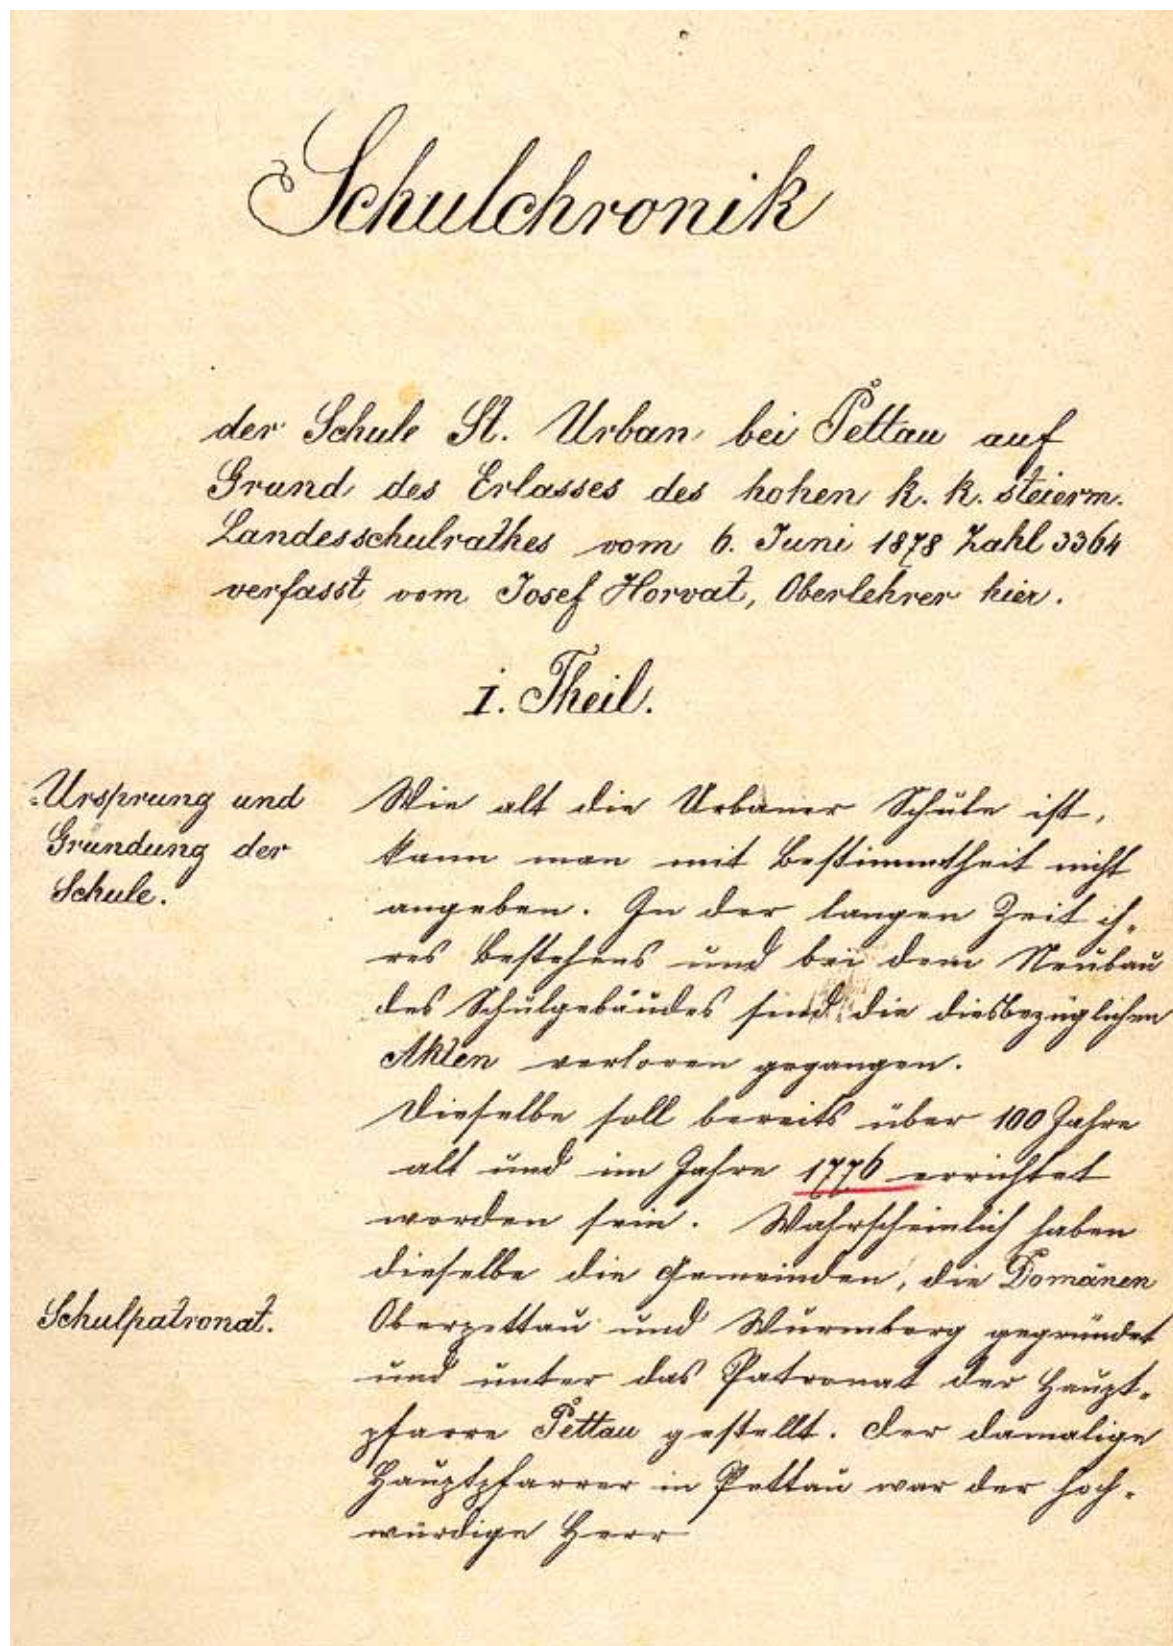 Schulchronik
der Schule St. Urban bei Pettau auf
Grund des Erlasses des hohen k. k. steierm.
Landesschulrathes vom 6. Juni 1878 Zahl 3364
verfasst vom Josef Horvat, Oberlehrer hier.
I. Theil.
Ursprung und
Gründung der
Schule.
Wie alt die Urbaner Schule ist,
kann man mit Bestimmtheit nicht
angeben. In der langen Zeit ih-
res Bestehens und bei dem Neubau
des Schulgebäudes sind die diesbezüglichen
Akten verloren gegangen.
Dieselbe soll bereits über 100 Jahre
alt und im Jahre 1776 errichtet
worden sein. Wahrscheinlich haben
dieselbe die Gemeinden, die Domänen
Schulpatronat.
Oberpettau und Wurmberg gegründet
und unter das Patronat der Haupt-
pfarre Pettau gestellt. Der damalige
Hauptpfarrer in Pettau war der hoch-
würdige Herr